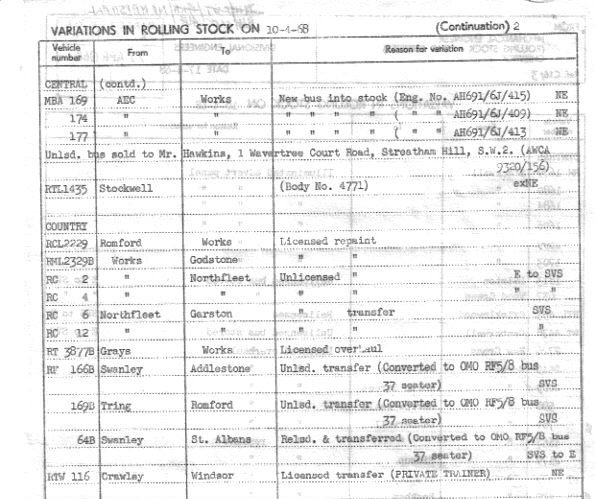 VARIATIONS IN ROLLING STOCK ON 10-4-68 (Continuation) 2
Vehicle number From To Reason for variation
CENTRAL (contd.)
MBA 169 AEC Works New bus into stock (Eng. No. AH691/6J/415) NE
174 " " " " " " ( " " AH691/6J/409) NE
177 " " " " " " ( " " AH691/6J/413 NE
Unlsd. bus sold to Mr. Hawkins, 1 Wavertree Court Road, Streatham Hill, S.W.2. (AWCA
9320/156)
RTL1435 Stockwell (Body No. 4771) exNE
COUNTRY
RCL2229 Romford Works Licensed repaint
RML2329B Works Godstone " "
RC 2 " Northfleet Unlicensed " E to SVS
RC 4 " " " " " "
RC 6 Northfleet Garston " transfer SVS
RC 12 " " " " "
RT 3877B Grays Works Licensed overhaul
RF 166B Swanley Addlestone Unlsd. transfer (Converted to OMO RF5/8 bus
37 seater) SVS
169B Tring Romford Unlsd. transfer (Converted to OMO RF5/8 bus
37 seater) SVS
64B Swanley St. Albans Relsd. & transferred (Converted to OMO RF5/8 bus
37 seater) SVS to E
RTW 116 Crawley Windsor Licensed transfer (PRIVATE TRAINER) NE